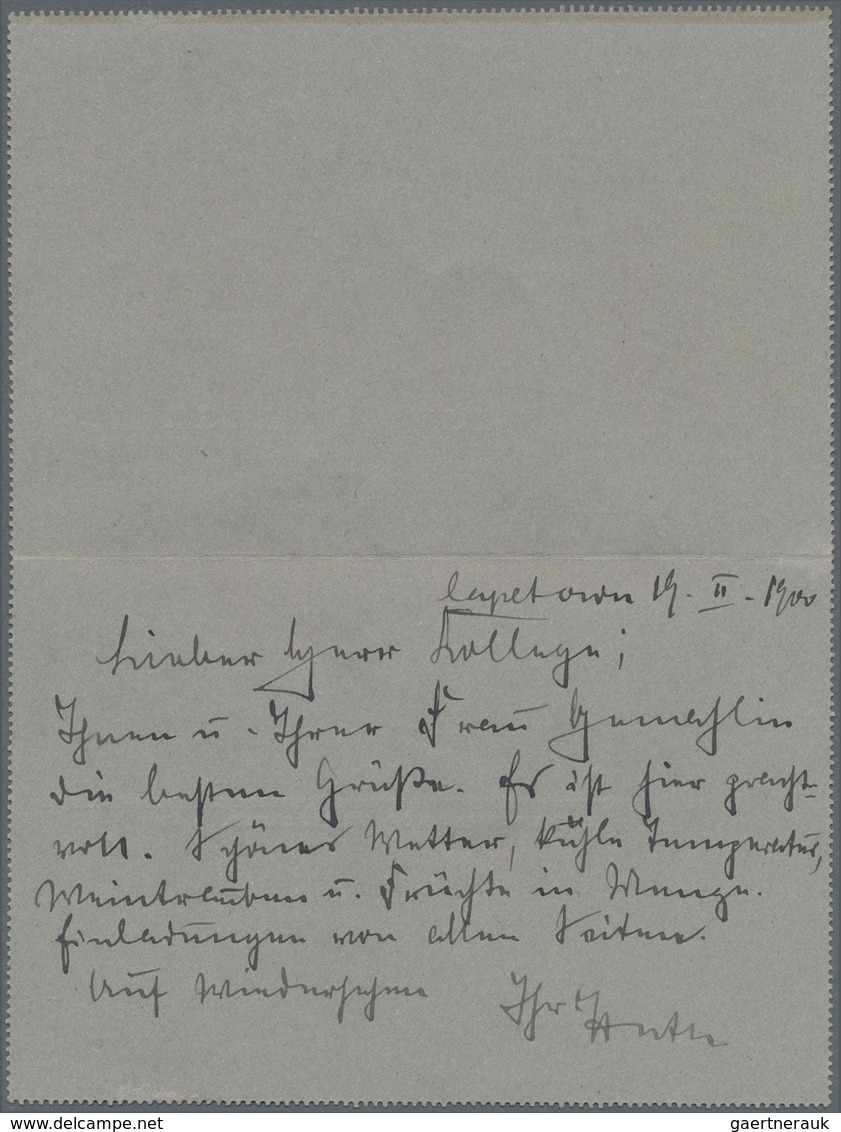 Capetown 19. II. 1900
Lieber Herr Kollege;
Ihnen u. Ihrer Frau Gemahlin
die besten Grüße. Es ist hier pracht-
voll. Schönes Wetter, kühle Temperatur,
Weintrauben u. Früchte in Menge.
Einladungen von allen Seiten.
Auf Wiedersehen Ihr
www.delcampe.net
gaertnerauk